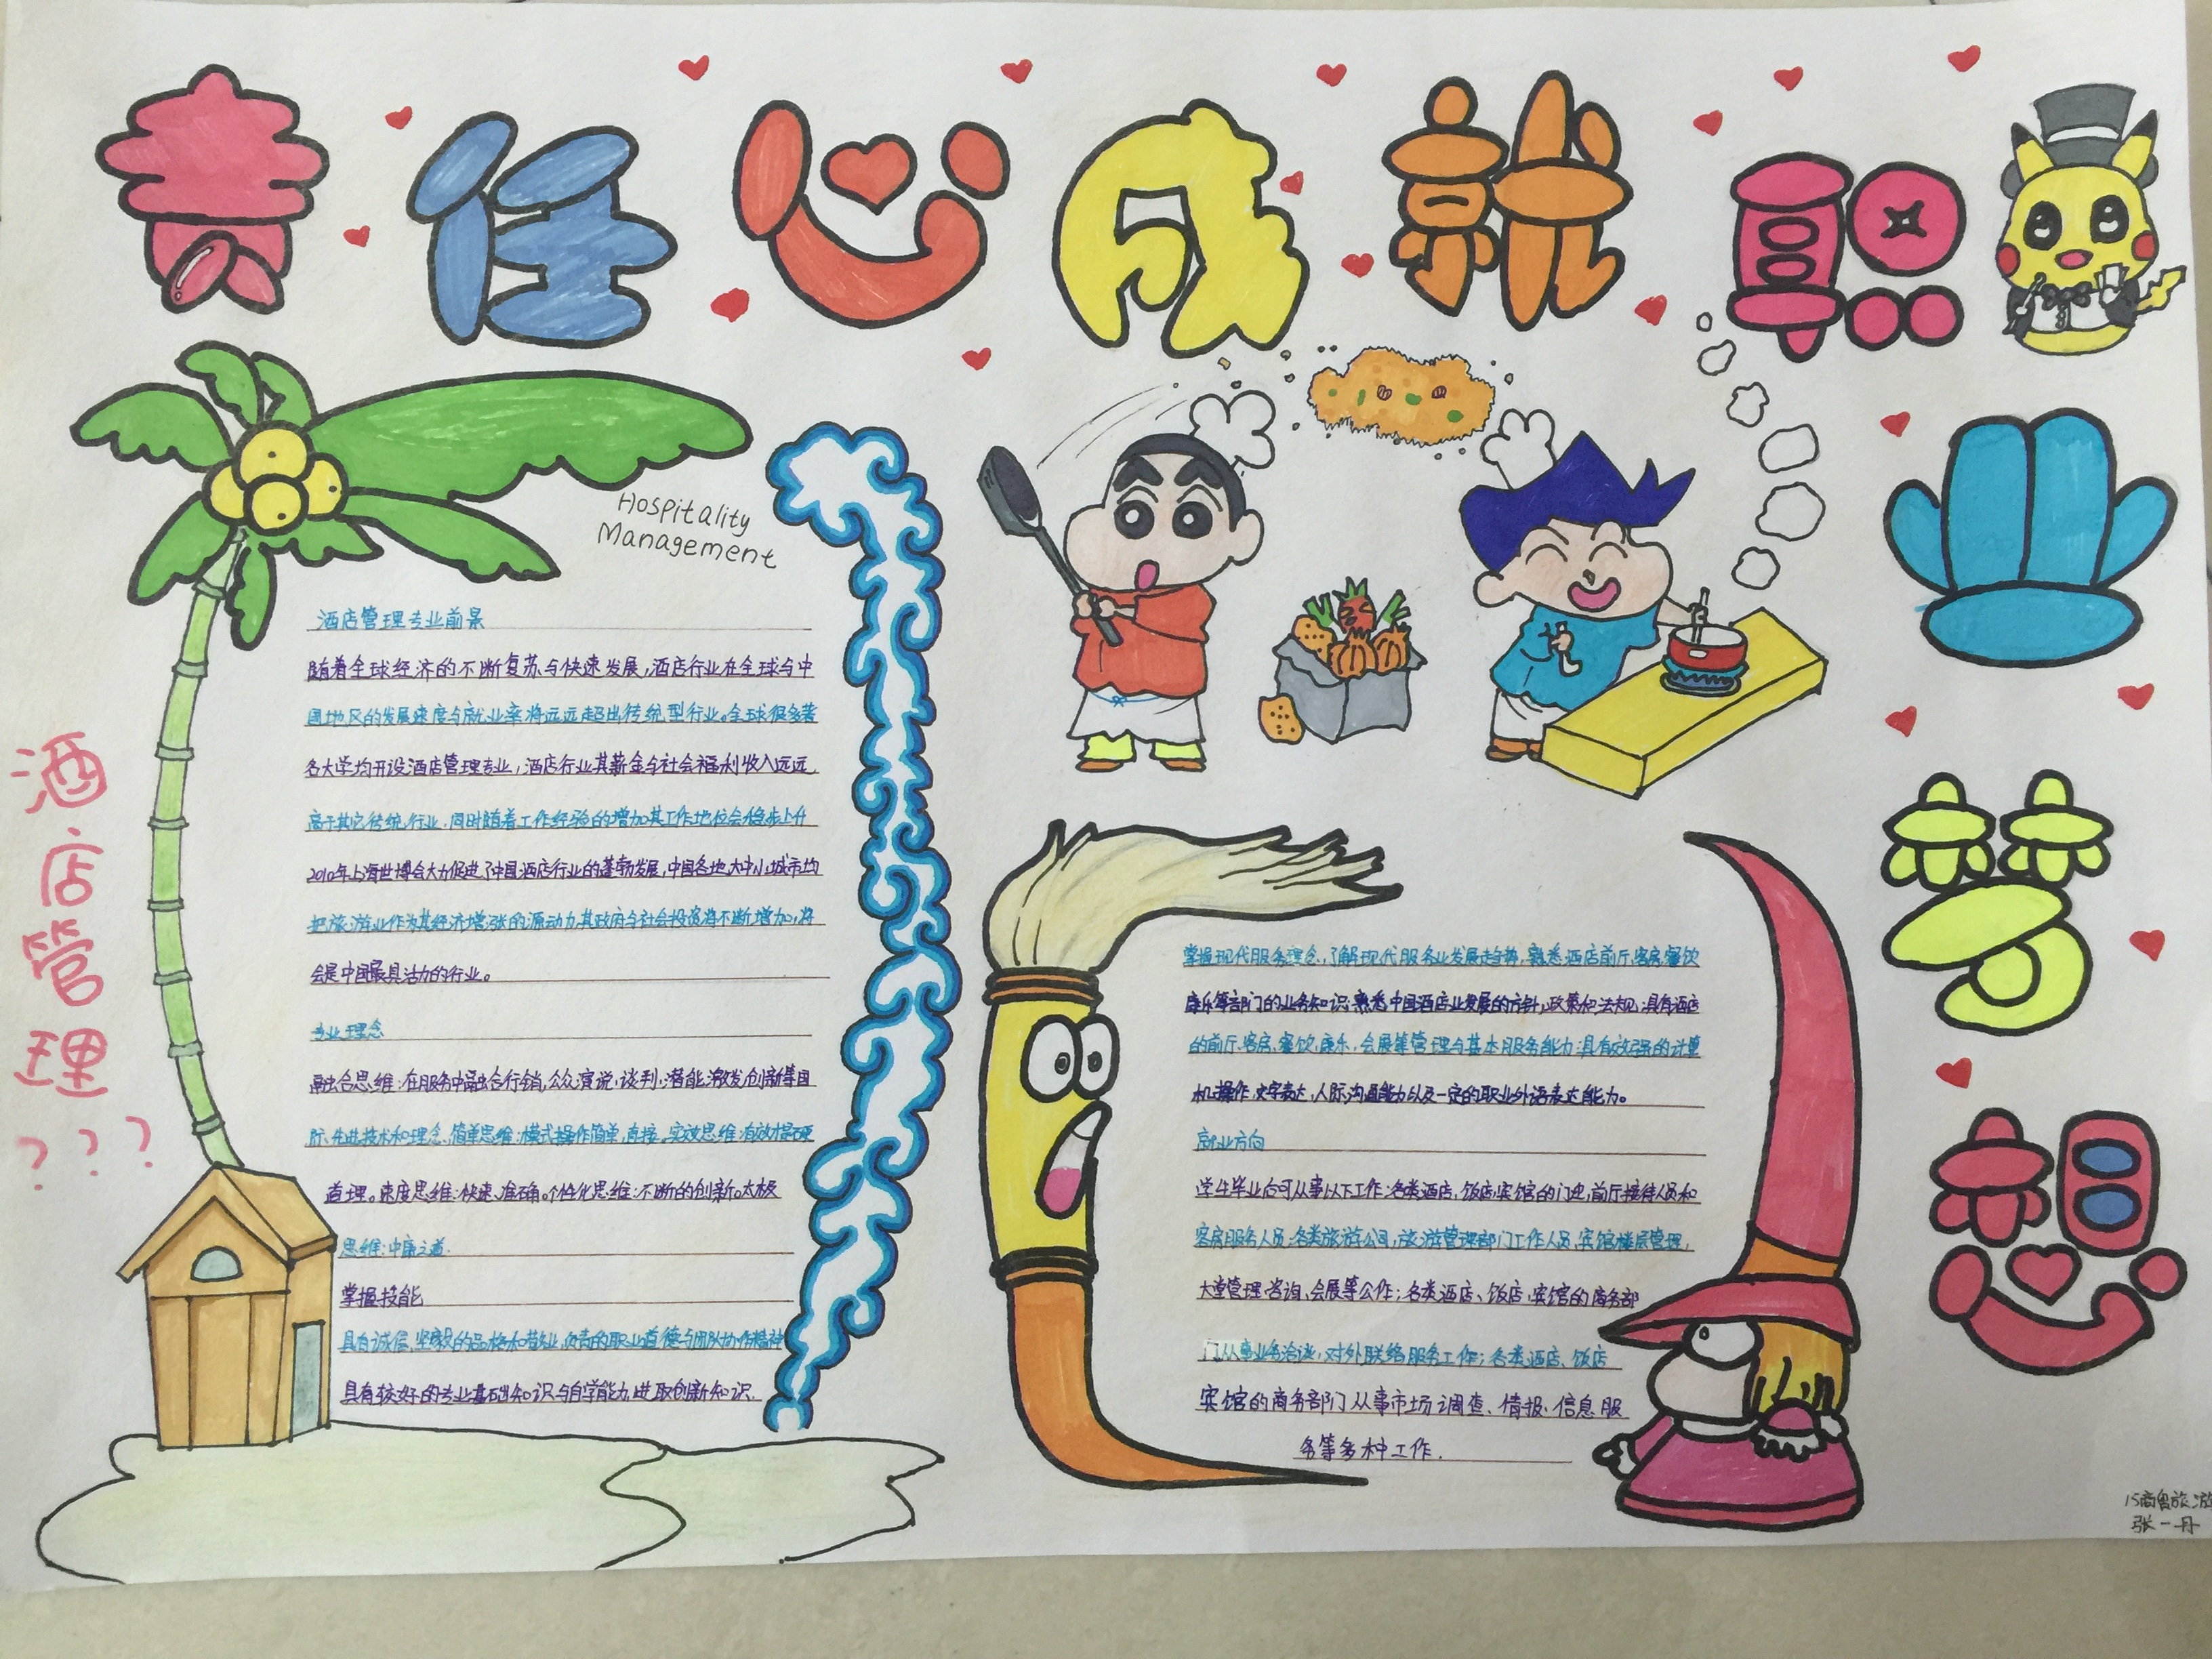 责任心成就职业梦想
Hospitality
Management
酒店管理
? ? ?
酒店管理专业前景
随着全球经济的不断复苏与快速发展,酒店行业在全球与中
国地区的发展速度与就业率将远远超出传统型行业。全球很多著
名大学均开设酒店管理专业,酒店行业其薪金与社会福利收入远远
高于其它传统行业,同时随着工作经验的增加其工作地位会稳步上升
2010年上海世博会大力促进了中国酒店行业的蓬勃发展,中国各地大中小城市均
把旅游业作为其经济增张的源动力其政府与社会投资将不断增加,将
会是中国最具活力的行业。
专业理念
融合思维:在服务中融合行销,公众演说,谈判,潜能激发,创新等国
际先进技术和理念、简单思维:模式操作简单,直接、实效思维:有效才是硬
道理。速度思维:快速、准确。个性化思维:不断的创新。太极
思维:中庸之道.
掌握技能
具有诚信,坚毅的品格和敬业,负责的职业道德与团队协作精神
具有较好的专业基础知识与自学能力,进取创新知识.
掌握现代服务理念,了解现代服务业发展趋势,熟悉酒店前厅,客房,餐饮
康乐等部门的业务知识;熟悉中国酒店业发展的方针,政策和法规;具有酒店
的前厅、客房、餐饮、康乐,会展等管理与基本服务能力;具有较强的计算
机操作,文字表达,人际沟通能力以及一定的职业外语表达能力。
就业方向
学生毕业后可从事以下工作:各类酒店,饭店,宾馆的门迎,前厅接待人员和
客房服务人员;各类旅游公司,旅游管理部门工作人员,宾馆楼层管理,
大堂管理,咨询,会展等公作;各类酒店、饭店,宾馆的商务部
门从事业务洽谈,对外联络服务工作;各类酒店、饭店
宾馆的商务部门从事市场调查、情报,信息服
务等多种工作.
15商鲁旅游
张一丹